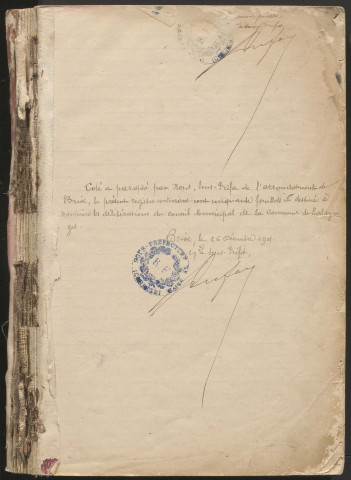 Coté et paraphé par nous, Sous-Préfet de l'arrondissement de
Brive, le présent registre contenant cent cinquante feuillets et destiné à
recevoir les délibérations du conseil Municipal de la Commune de
Brive, le 26 Décembre
Le Sous-Préfet,
SOUS-PRÉFECTURE DE BRIVE